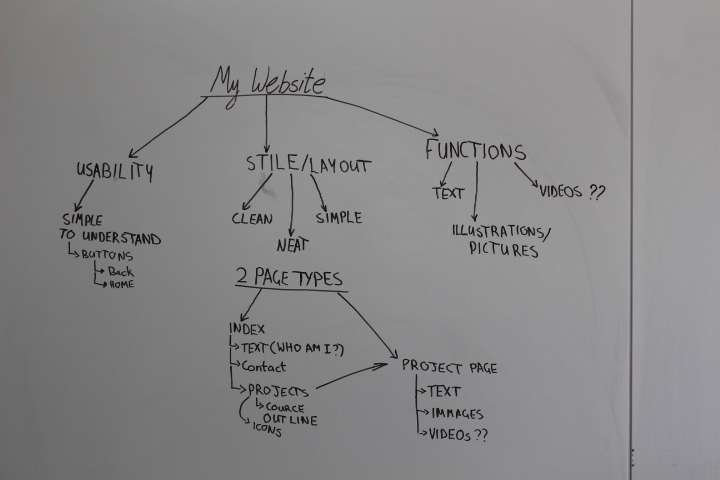 My Website
USABILITY
SIMPLE
TO UNDERSTAND
BUTTONS
Back
HOME
STILE/LAYOUT
CLEAN
NEAT
SIMPLE
FUNCTIONS
TEXT
ILLUSTRATIONS/
PICTURES
VIDEOS ??
2 PAGE TYPES
INDEX
TEXT (WHO AM I?)
Contact
PROJECTS
COURCE
OUTLINE
ICONS
PROJECT PAGE
TEXT
IMMAGES
VIDEOs ??